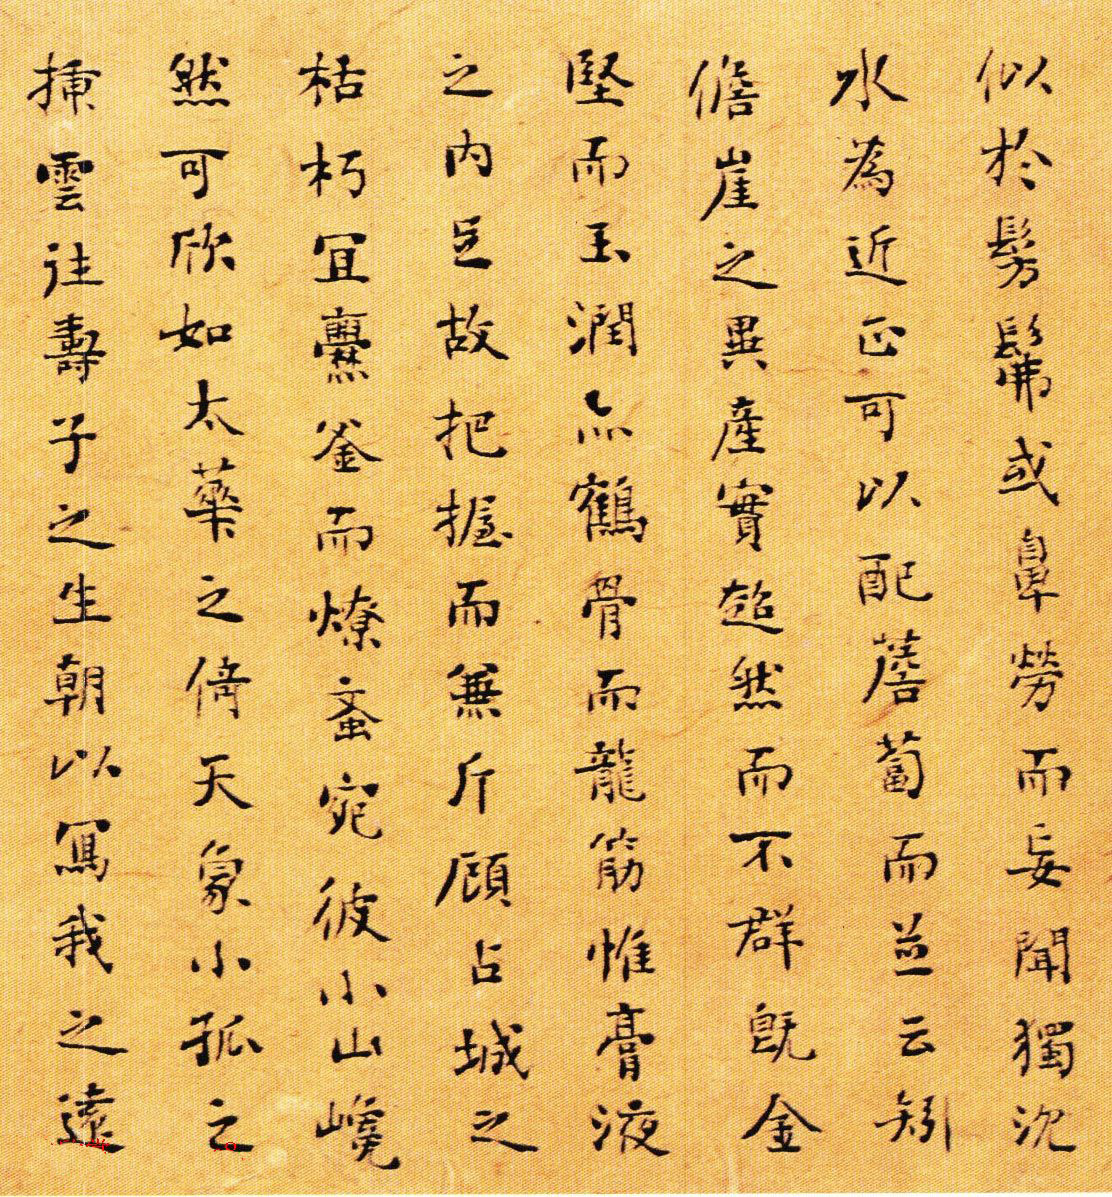 似於髣髴或鼻勞而妄聞獨沈
水為近正可以配薝蔔而並云矧
儋崖之異產實超然而不群既金
堅而玉潤亦鶴骨而龍筋惟膏液
之內足故把握而兼斤顧占城之
枯朽宜爨釜而燎蚉宛彼小山巉
然可欣如太華之倚天象小孤之
插雲往壽子之生朝以寫我之遠